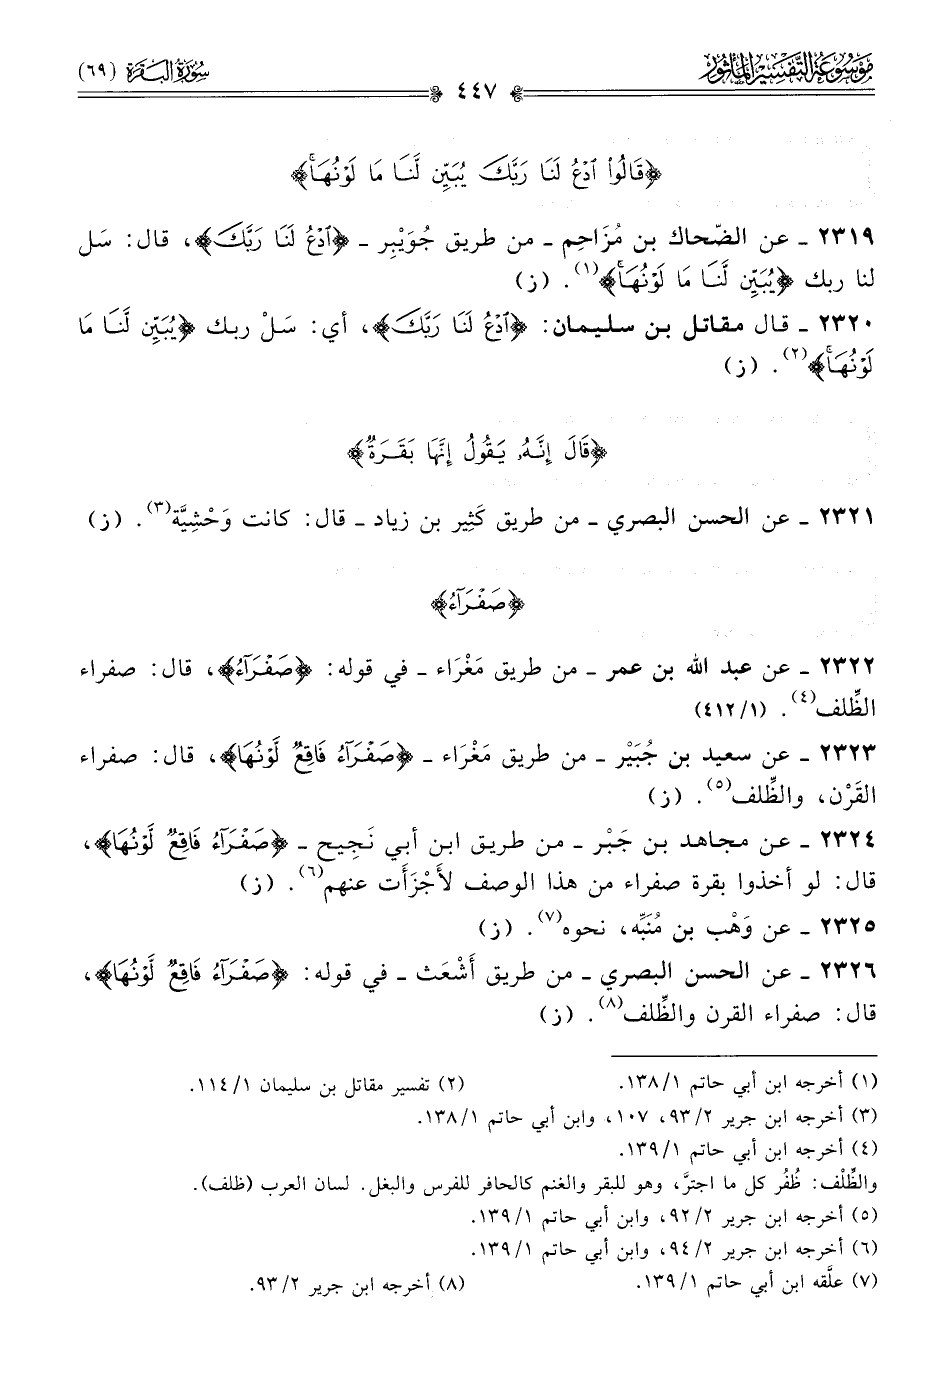 مَوْسُوعَة التَّفْسِير المَأثُور
٤٤٧
سُورَةُ البَقَرَة (٦٩)
﴿قَالُوا۟ ٱدۡعُ لَنَا رَبَّكَ يُبَيِّن لَّنَا مَا لَوۡنُهَاۚ﴾
٢٣١٩ ـ عن الضّحاك بن مُزَاحِم ـ من طريق جُوَيْبِر ـ ﴿ٱدۡعُ لَنَا رَبَّكَ﴾، قال: سَل
لنا ربك ﴿يُبَيِّن لَّنَا مَا لَوۡنُهَاۚ﴾(١). (ز)
٢٣٢٠ ـ قال مقاتل بن سليمان: ﴿ٱدۡعُ لَنَا رَبَّكَ﴾، أي: سَلْ ربك ﴿يُبَيِّن لَّنَا مَا
لَوۡنُهَاۚ﴾(٢). (ز)
﴿قَالَ إِنَّهُۥ يَقُولُ إِنَّهَا بَقَرَةٌ﴾
٢٣٢١ ـ عن الحسن البصري ـ من طريق كَثِير بن زياد ـ قال: كانت وَحْشِيَّة(٣). (ز)
﴿صَفۡرَآءُ﴾
٢٣٢٢ ـ عن عبد الله بن عمر ـ من طريق مَغْرَاء ـ في قوله: ﴿صَفۡرَآءُ﴾، قال: صفراء
الظِّلف(٤). (٤١٢/١)
٢٣٢٣ ـ عن سعيد بن جُبَيْر ـ من طريق مَغْرَاء ـ ﴿صَفۡرَآءُ فَاقِعٌ لَّوۡنُهَا﴾، قال: صفراء
القَرْن، والظِّلف(٥). (ز)
٢٣٢٤ ـ عن مجاهد بن جَبْر ـ من طريق ابن أبي نَجِيح ـ ﴿صَفۡرَآءُ فَاقِعٌ لَّوۡنُهَا﴾،
قال: لو أخذوا بقرة صفراء من هذا الوصف لأَجْزَأَت عنهم(٦). (ز)
٢٣٢٥ ـ عن وَهْب بن مُنَبِّه، نحوه(٧). (ز)
٢٣٢٦ ـ عن الحسن البصري ـ من طريق أَشْعَث ـ في قوله: ﴿صَفۡرَآءُ فَاقِعٌ لَّوۡنُهَا﴾،
قال: صفراء القرن والظِّلف(٨). (ز)
(١) أخرجه ابن أبي حاتم ١٣٨/١.
(٢) تفسير مقاتل بن سليمان ١١٤/١.
(٣) أخرجه ابن جرير ٩٣/٢، ١٠٧، وابن أبي حاتم ١٣٨/١.
(٤) أخرجه ابن أبي حاتم ١٣٩/١.
والظِّلْف: ظُفُر كل ما اجترَّ، وهو للبقر والغنم كالحافر للفرس والبغل. لسان العرب (ظلف).
(٥) أخرجه ابن جرير ٩٢/٢، وابن أبي حاتم ١٣٩/١.
(٦) أخرجه ابن جرير ٩٤/٢، وابن أبي حاتم ١٣٩/١.
(٧) علَّقه ابن أبي حاتم ١٣٩/١.
(٨) أخرجه ابن جرير ٩٣/٢.